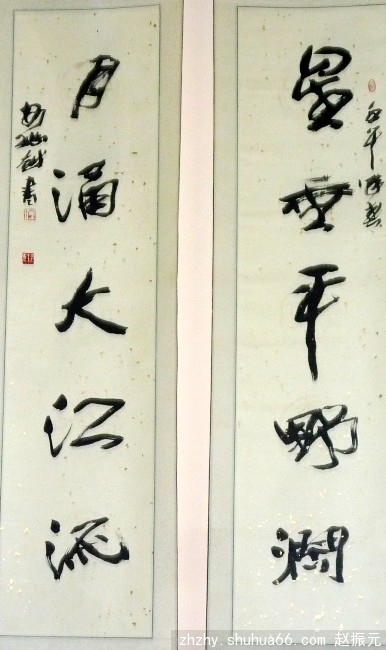 星垂平野阔
月涌大江流
书
zhzhy.shuhua66.com 赵振元